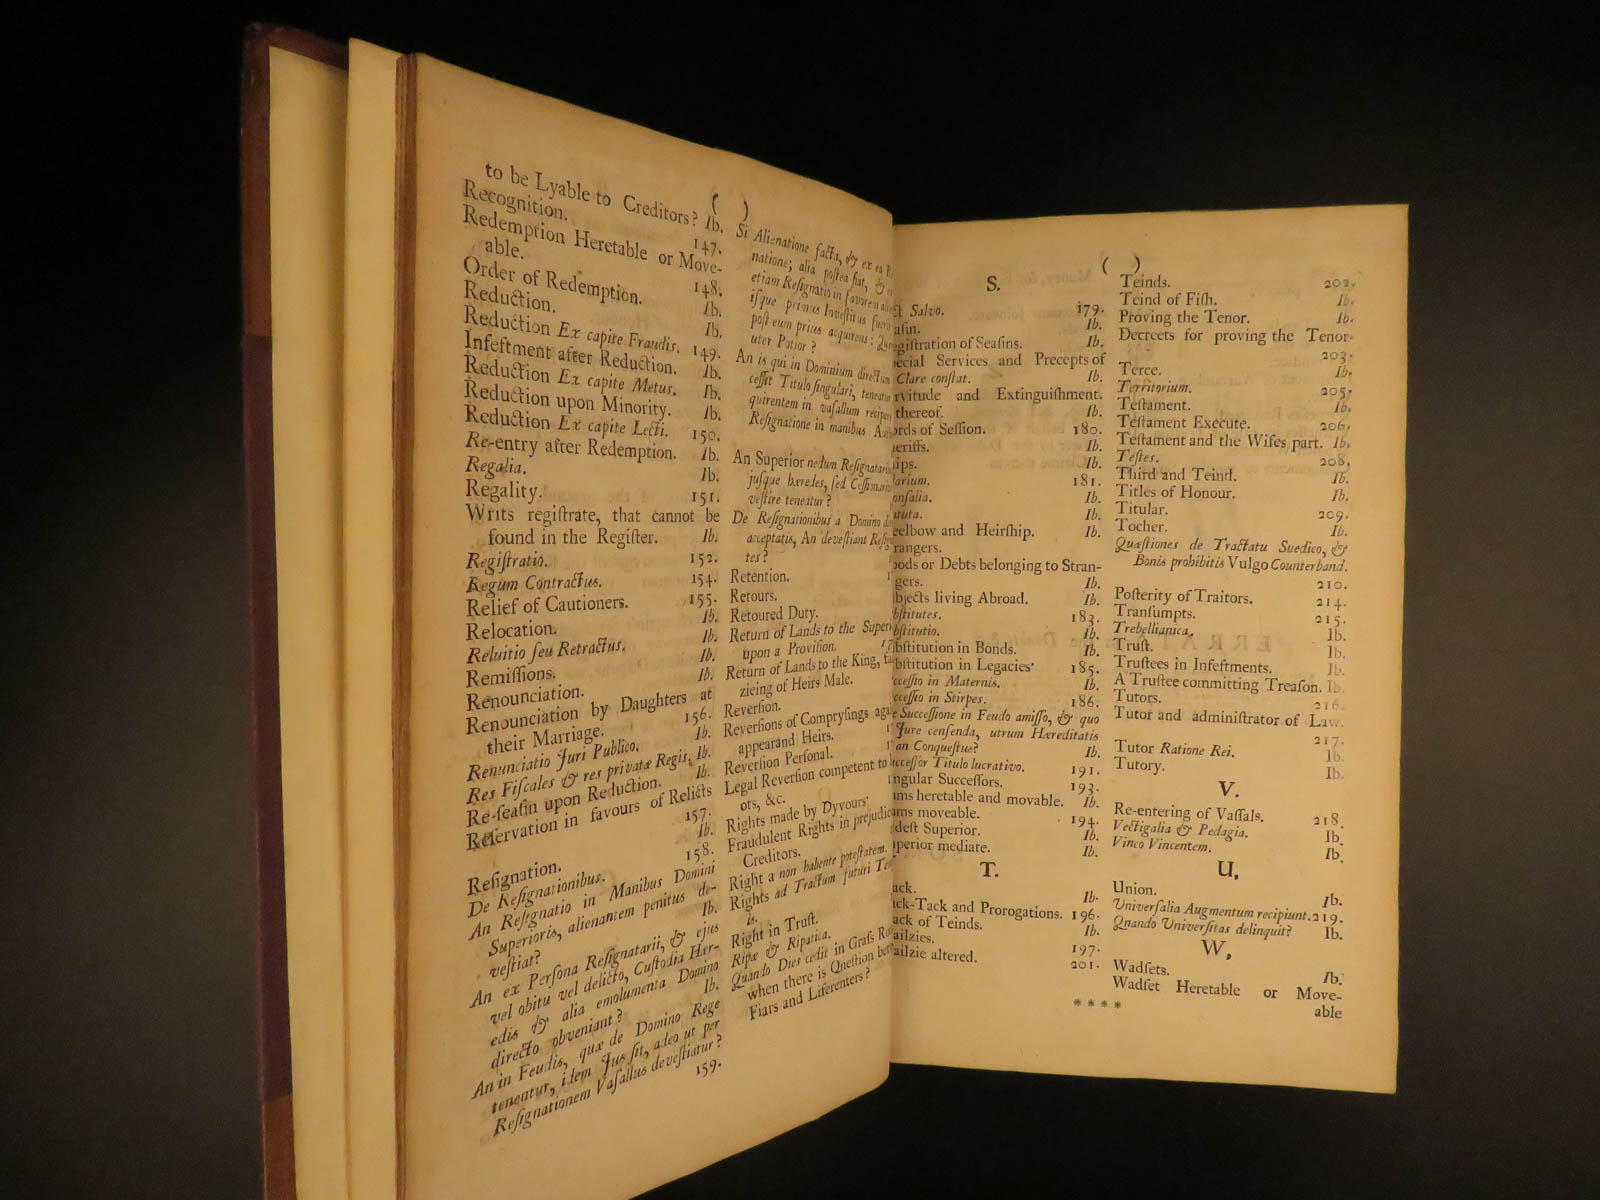 ( )
to be Lyable to Creditors? Ib.
Recognition. 147.
Redemption Heretable or Move-
able. 148.
Order of Redemption. Ib.
Reduction. Ib.
Reduction Ex capite Fraudis. 149.
Infeftment after Reduction. Ib.
Reduction Ex capite Metus. Ib.
Reduction upon Minority. Ib.
Reduction Ex capite Lecti. 150.
Re-entry after Redemption. Ib.
Regalia. Ib.
Regality. 151.
Writs regiſtrate, that cannot be
found in the Regiſter. Ib.
Regiſtratio. 152.
Regum Contractus. 154.
Relief of Cautioners. 155.
Relocation. Ib.
Reluitio ſeu Retractus. Ib.
Remiſſions. Ib.
Renounciation. Ib.
Renounciation by Daughters at
their Marriage. 156.
Renunciatio Juri Publico. Ib.
Res Fiſcales & res privatæ Regis. Ib.
Re-ſeaſin upon Reduction. Ib.
Reſervation in favours of Relicts
157.
Reſignation. Ib.
De Reſignationibus. 158.
An Reſignatio in Manibus Domini
Superioris, alienantem penitus de-
veſtiat? Ib.
An ex Perſona Reſignatarii, & ejus
vel obitu vel delicto, Cuſtodia Hær-
edis & alia emolumenta Domino
directo obveniant? Ib.
An in Feudis, quæ de Domino Rege
tenentur, idem Jus ſit, adeo ut per
Reſignationem Vaſallus deveſtiatur?
159.
Si Alienatione facta, & ex ea
natione; alia poſtea fiat, &
etiam Reſignatio in favorem
iſque primus Inveſtitus fuerit
poſt eum prius acquirens:
uter Potior?
An is qui in Dominium directum
ceſſit Titulo ſingulari, teneatur
quirentem in vaſallum
Reſignatione in manibus
An Superior nedum
juſque hæredes, ſed
veſtire teneatur?
De Reſignationibus a Domino
acceptatis, An deveſtiant
tes?
Retention.
Retours.
Retoured Duty.
Return of Lands to the
upon a Proviſion.
Return of Lands to the King,
zieing of Heirs Male.
Reverſion.
Reverſions of Compryſings
appearand Heirs.
Reverſion Perſonal.
Legal Reverſion competent to
ots, &c.
Rights made by Dyvours
Fraudulent Rights in
Creditors.
Right a non habente poteſtatem.
Rights ad Tractum futuri
is.
Right in Truſt.
Ripæ & Ripatica.
Quando Dies cedit in Graſs
when there is Queſtion
Fiars and Liferenters?
( )
S.
Salvo. 179.
Ib.
of Seaſins. Ib.
Services and Precepts of
Clare conſtat. Ib.
and Extinguiſhment
thereof. Ib.
of Seſſion. 180.
Ib.
Ib.
181.
Ib.
Ib.
and Heirſhip. Ib.
or Debts belonging to Stran-
gers. Ib.
living Abroad. Ib.
183.
Ib.
in Bonds. Ib.
in Legacies 185.
in Maternis. Ib.
in Stirpes. 186.
Succeſſione in Feudo amiſſo, & quo
Jure cenſenda, utrum Hæreditatis
an Conqueſtus? Ib.
Titulo lucrativo. 191.
Succeſſors. 193.
heretable and movable. Ib.
moveable. 194.
Superior. Ib.
mediate. Ib.
T.
Ib.
and Prorogations. 196.
of Teinds. Ib.
197.
altered. 201.
****
Teinds. 202.
Teind of Fiſh. Ib.
Proving the Tenor. Ib.
Decreets for proving the Tenor.
203.
Terce. Ib.
Territorium. 205.
Teſtament. Ib.
Teſtament Execute. 206.
Teſtament and the Wifes part. Ib.
Teſtes. 208.
Third and Teind. Ib.
Titles of Honour. Ib.
Titular. 209.
Tocher. Ib.
Quæſtiones de Tractatu Suedico, &
Bonis prohibitis Vulgo Counterband.
210.
Poſterity of Traitors. 214.
Tranſumpts. 215.
Trebellianica. Ib.
Truſt. Ib.
Truſtees in Infeftments. Ib.
A Truſtee committing Treaſon. Ib.
Tutors. 216.
Tutor and adminiſtrator of Law.
217.
Tutor Ratione Rei. Ib.
Tutory. Ib.
V.
Re-entering of Vaſſals. 218.
Vectigalia & Pedagia. Ib.
Vinco Vincentem. Ib.
U,
Union. Ib.
Univerſalia Augmentum recipiunt. 219.
Quando Univerſitas delinquit? Ib.
W,
Wadſets. Ib.
Wadſet Heretable or Move-
able